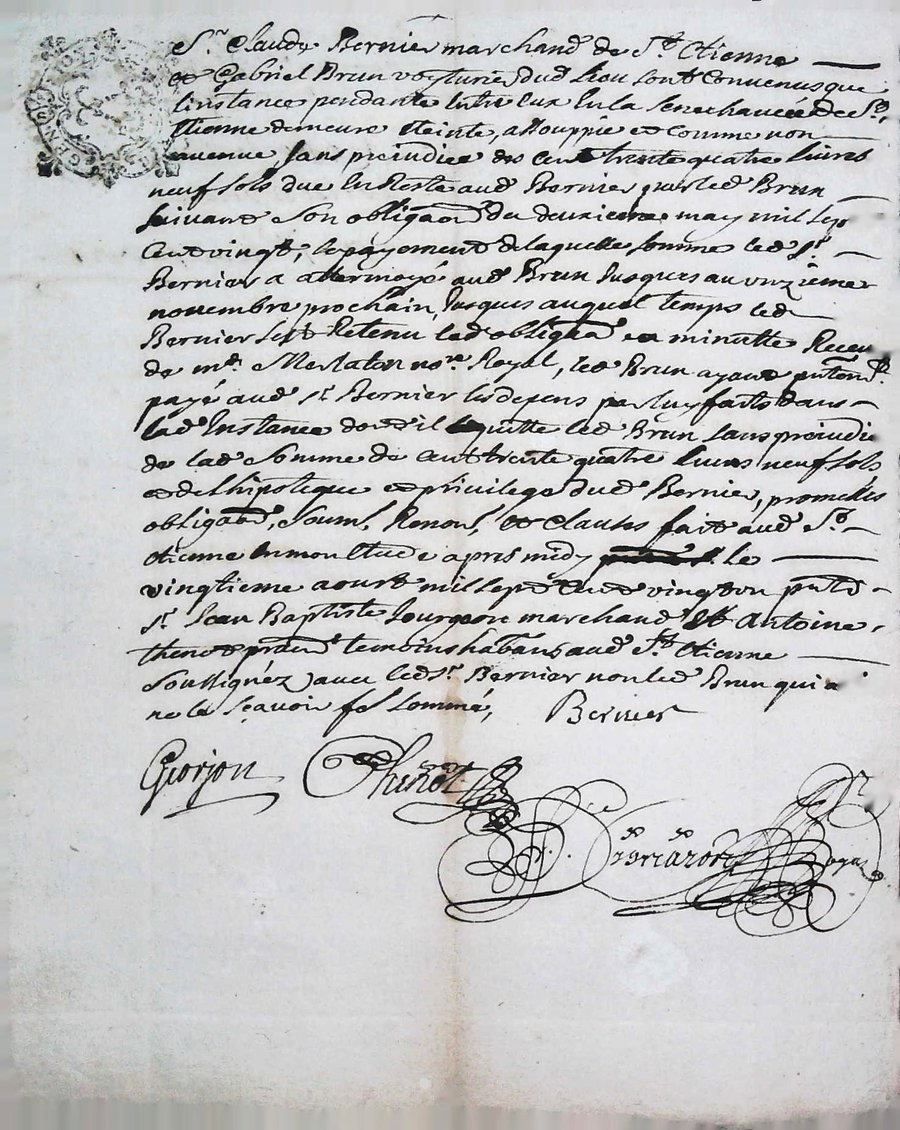 Sr. Claude Bernier marchand de St. Etienne
et Gabriel Brun voyturier dud lieu sont convenus que
linstance pendante entre eux en la senechaucée de St.
Etienne demeure eteinte, assouppie et comme non
avenue, sans prejudice des cent trente quatre livres
neuf sols due en reste aud Bernier par led Brun
suivant son obligaon du deuxieme may mil sept
cent vingt, le payement de laquelle somme led Sr.
Bernier a attermoyé aud Brun jusques au unzieme
novembre prochain, jusques auquel temps led
Bernier sest retenu lad obligaon en minutte receu
de me. nore. Royal, led Brun ayant pntem.
payé aud sr. Bernier les depens par luy faits dans
lad instance dont il quitte led Brun sans prejudice
de lad somme de cent trente quatre livres neuf sols
et de lhipoteque et privilege dud Bernier, promesses
obligaons, soum., renon., et clauses fait aud St.
etienne en mon etude apres midy le
vingtieme aoust mil sept cent vingt un pnts
sr. Jean Baptiste marchand et Antoine
thenot praen temoins habitans aud St. Etienne
soussignéz avec led sr. Bernier non led Brun qui a
ne le sçavoir sommé, Bernier
Thenot